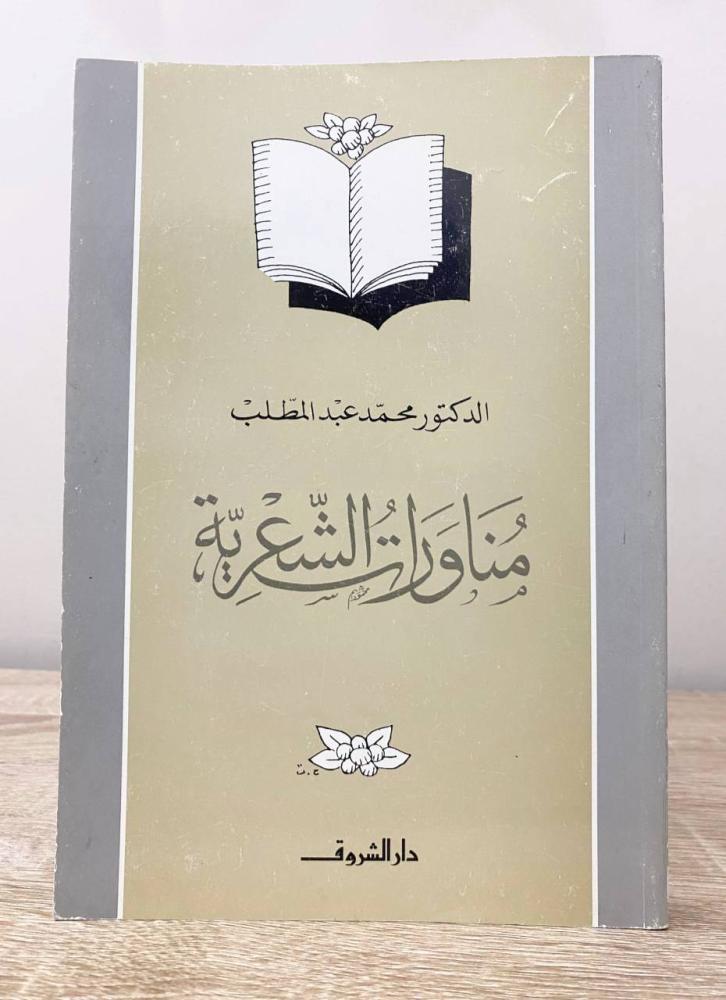 الدكتور محمّد عبْد المطّلبْ
مُنَاوَرَاتُ الشِّعْرِيَّة
ح.ت
دار الشروق